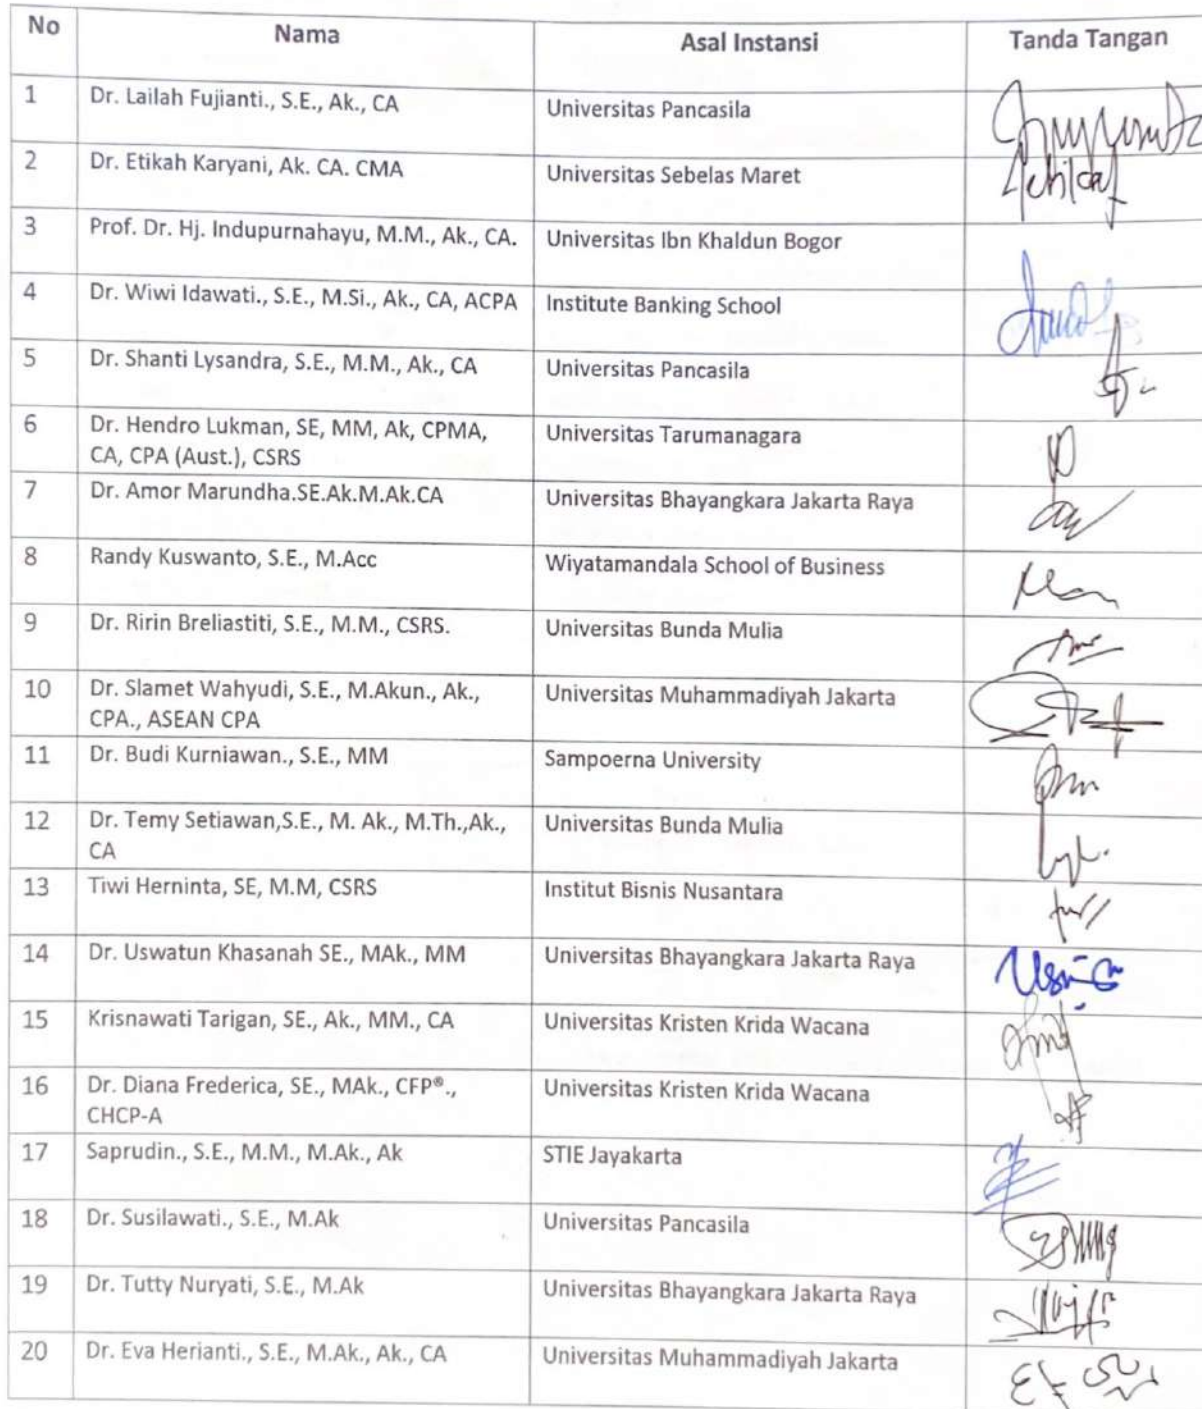 No Nama Asal Instansi Tanda Tangan
1 Dr. Lailah Fujianti., S.E., Ak., CA Universitas Pancasila
2 Dr. Etikah Karyani, Ak. CA. CMA Universitas Sebelas Maret
3 Prof. Dr. Hj. Indupurnahayu, M.M., Ak., CA. Universitas Ibn Khaldun Bogor
4 Dr. Wiwi Idawati., S.E., M.Si., Ak., CA, ACPA Institute Banking School
5 Dr. Shanti Lysandra, S.E., M.M., Ak., CA Universitas Pancasila
6 Dr. Hendro Lukman, SE, MM, Ak, CPMA, Universitas Tarumanagara
CA, CPA (Aust.), CSRS
7 Dr. Amor Marundha.SE.Ak.M.Ak.CA Universitas Bhayangkara Jakarta Raya
8 Randy Kuswanto, S.E., M.Acc Wiyatamandala School of Business
9 Dr. Ririn Breliastiti, S.E., M.M., CSRS. Universitas Bunda Mulia
10 Dr. Slamet Wahyudi, S.E., M.Akun., Ak., Universitas Muhammadiyah Jakarta
CPA., ASEAN CPA
11 Dr. Budi Kurniawan., S.E., MM Sampoerna University
12 Dr. Temy Setiawan,S.E., M. Ak., M.Th.,Ak., Universitas Bunda Mulia
CA
13 Tiwi Herninta, SE, M.M, CSRS Institut Bisnis Nusantara
14 Dr. Uswatun Khasanah SE., MAk., MM Universitas Bhayangkara Jakarta Raya
15 Krisnawati Tarigan, SE., Ak., MM., CA Universitas Kristen Krida Wacana
16 Dr. Diana Frederica, SE., MAk., CFP®., Universitas Kristen Krida Wacana
CHCP-A
17 Saprudin., S.E., M.M., M.Ak., Ak STIE Jayakarta
18 Dr. Susilawati., S.E., M.Ak Universitas Pancasila
19 Dr. Tutty Nuryati, S.E., M.Ak Universitas Bhayangkara Jakarta Raya
20 Dr. Eva Herianti., S.E., M.Ak., Ak., CA Universitas Muhammadiyah Jakarta